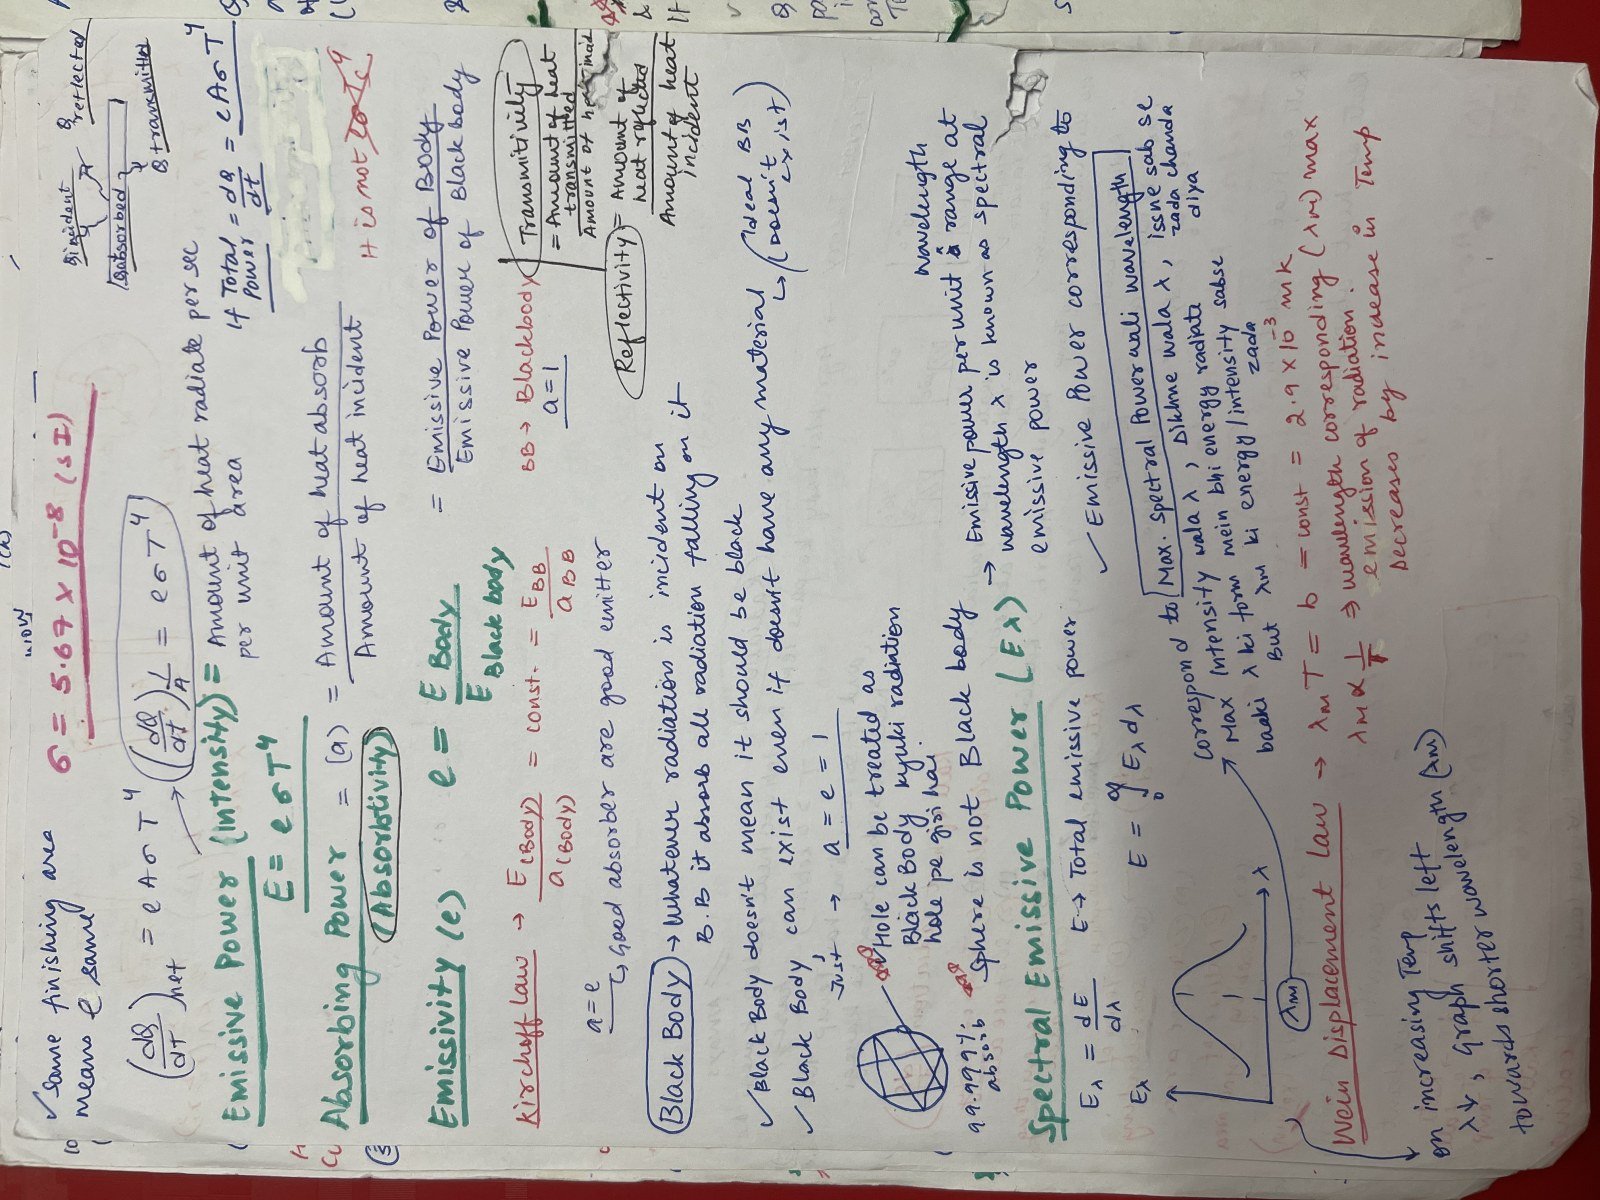 ✓ Same finishing area
means e same
σ = 5.67 × 10⁻⁸ (SI)
Qincident
Qreflected
Qabsorbed
Qtransmitted
(dQ/dt)net = eAσT⁴
→ (dQ/dt) 1/A = eσT⁴
Emissive Power (intensity) = Amount of heat radiate per sec
per unit area
E = eσT⁴
If Total Power = dQ/dt = eAσT⁴
Absorbing Power = (a) = Amount of heat absorb
Amount of heat incident
(Absorbtivity)
It is not
Emissivity (e) e = E Body / E Black body = Emissive Power of Body
Emissive Power of Black body
Kirchoff law → E(Body) / a(Body) = const. = E BB / a BB
BB → Blackbody
a = 1
Transmitivity
= Amount of heat transmitted
Amount of heat incid
a = e
↳ Good absorber are good emitter
Reflectivity = Amount of heat reflected
Amount of heat incident
Black Body → Whatever radiation is incident on
B.B it absorb all radiation falling on it
✓ Black Body doesn't mean it should be black
✓ Black Body can exist even if doesn't have any material
↳ (Ideal BB Doesnit exist)
Just → a = e = 1
Hole can be treated as
Black Body kyuki radiation
hole pe giri hai
99.999% absorb
Sphere is not Black body
Spectral Emissive Power (Eλ) → Emissive power per unit wavelength range at
wavelength λ is known as spectral
emissive power
Eλ = dE/dλ E → Total emissive power
E = ₀∫∞ Eλ dλ
✓ Emissive Power corresponding to
Eλ
λ
λm
correspond to Max. Spectral Power wali wavelength
Max Intensity wala λ, Dikhne wala λ, isne sab se zada chanda diya
baaki λ ki form mein bhi energy radiate
But λm ki energy/intensity sabse zada
Wein Displacement law → λm T = b = const = 2.9 × 10⁻³ mk
λm α 1/T ⇒ wavelength corresponding (λm) max
emission of radiation
Decreases by increase in Temp
on increasing Temp
λ↓, graph shifts left
towards shorter wavelength (λm)